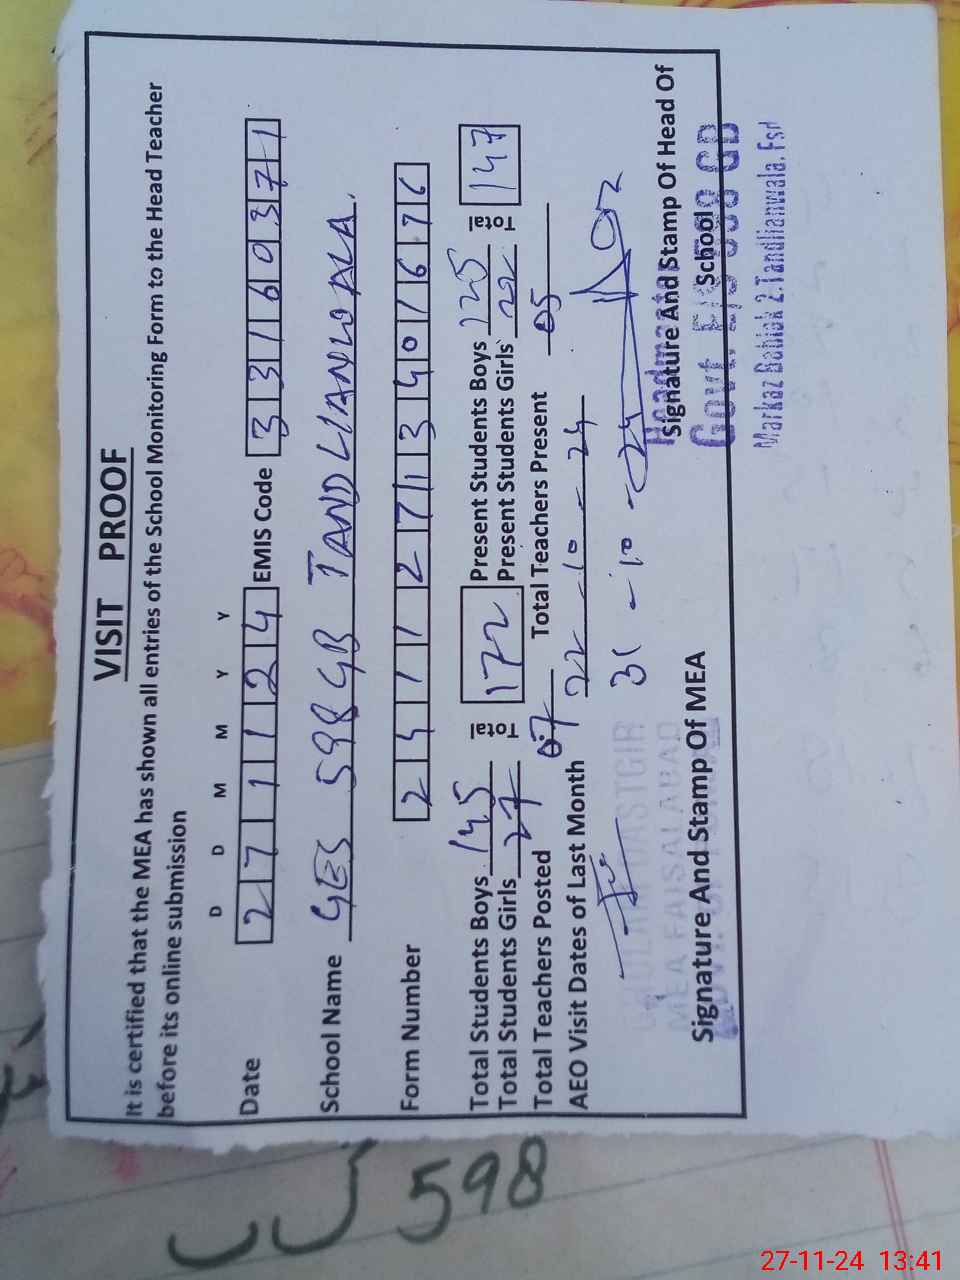 VISIT PROOF
It is certified that the MEA has shown all entries of the School Monitoring Form to the Head Teacher
before its online submission
D D M M Y Y
Date 2 7 1 1 2 4 EMIS Code 3 3 1 6 0 3 7 1
School Name GES 598 GB TANDLIANWALA.
Form Number 2 4 1 1 2 7 1 3 4 0 1 6 7 6
Total Students Boys 145 Total 172 Present Students Boys 125 Total 147
Total Students Girls 27 Present Students Girls 22
Total Teachers Posted 07 Total Teachers Present 05
AEO Visit Dates of Last Month 22-10-24
31-10-24
GHULAM DASTGIR
MEA FAISALABAD
Signature And Stamp Of MEA
Signature And Stamp Of Head Of
School
Headmaster
Govt. E/S 598 GB
Markaz Bahlak 2.Tandlianwala.Fsd
598
27-11-24 13:41